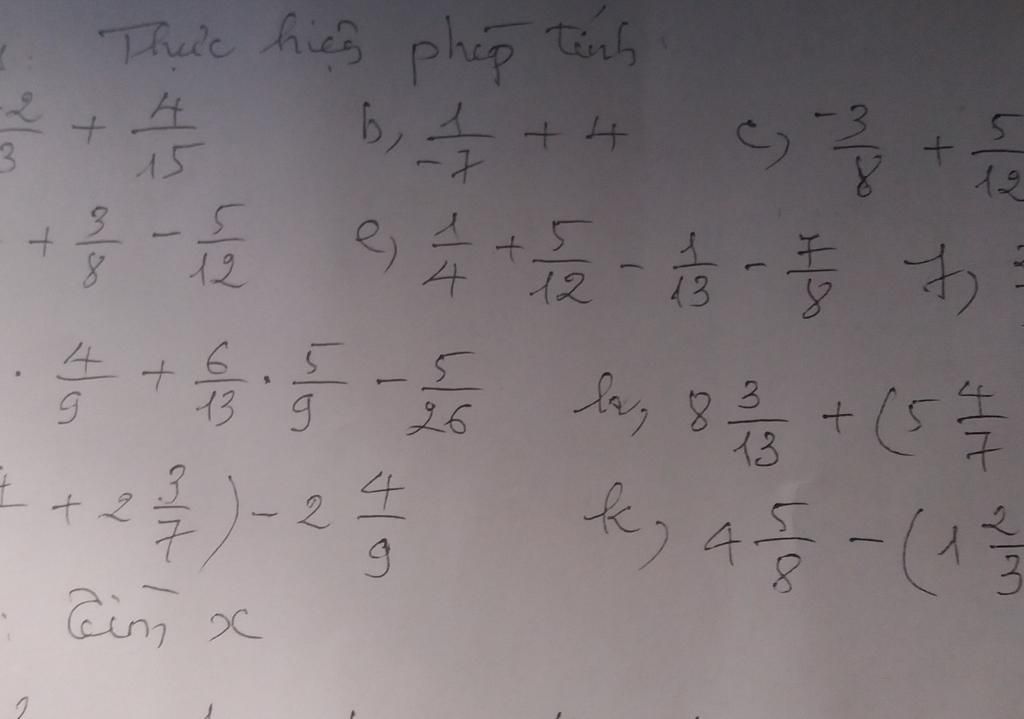 Thực hiện phép tính
-2/3 + 4/15 b, 1/-7 + 4 c, -3/8 + 5/12
+ 3/8 - 5/12 e, 1/4 + 5/12 - 1/13 - 7/8 f,
. 4/9 + 6/13 . 5/9 - 5/26 h, 8 3/13 + (5 4/7
+ 2 3/7) - 2 4/9 k, 4 5/8 - (1 2/3
: Tìm x